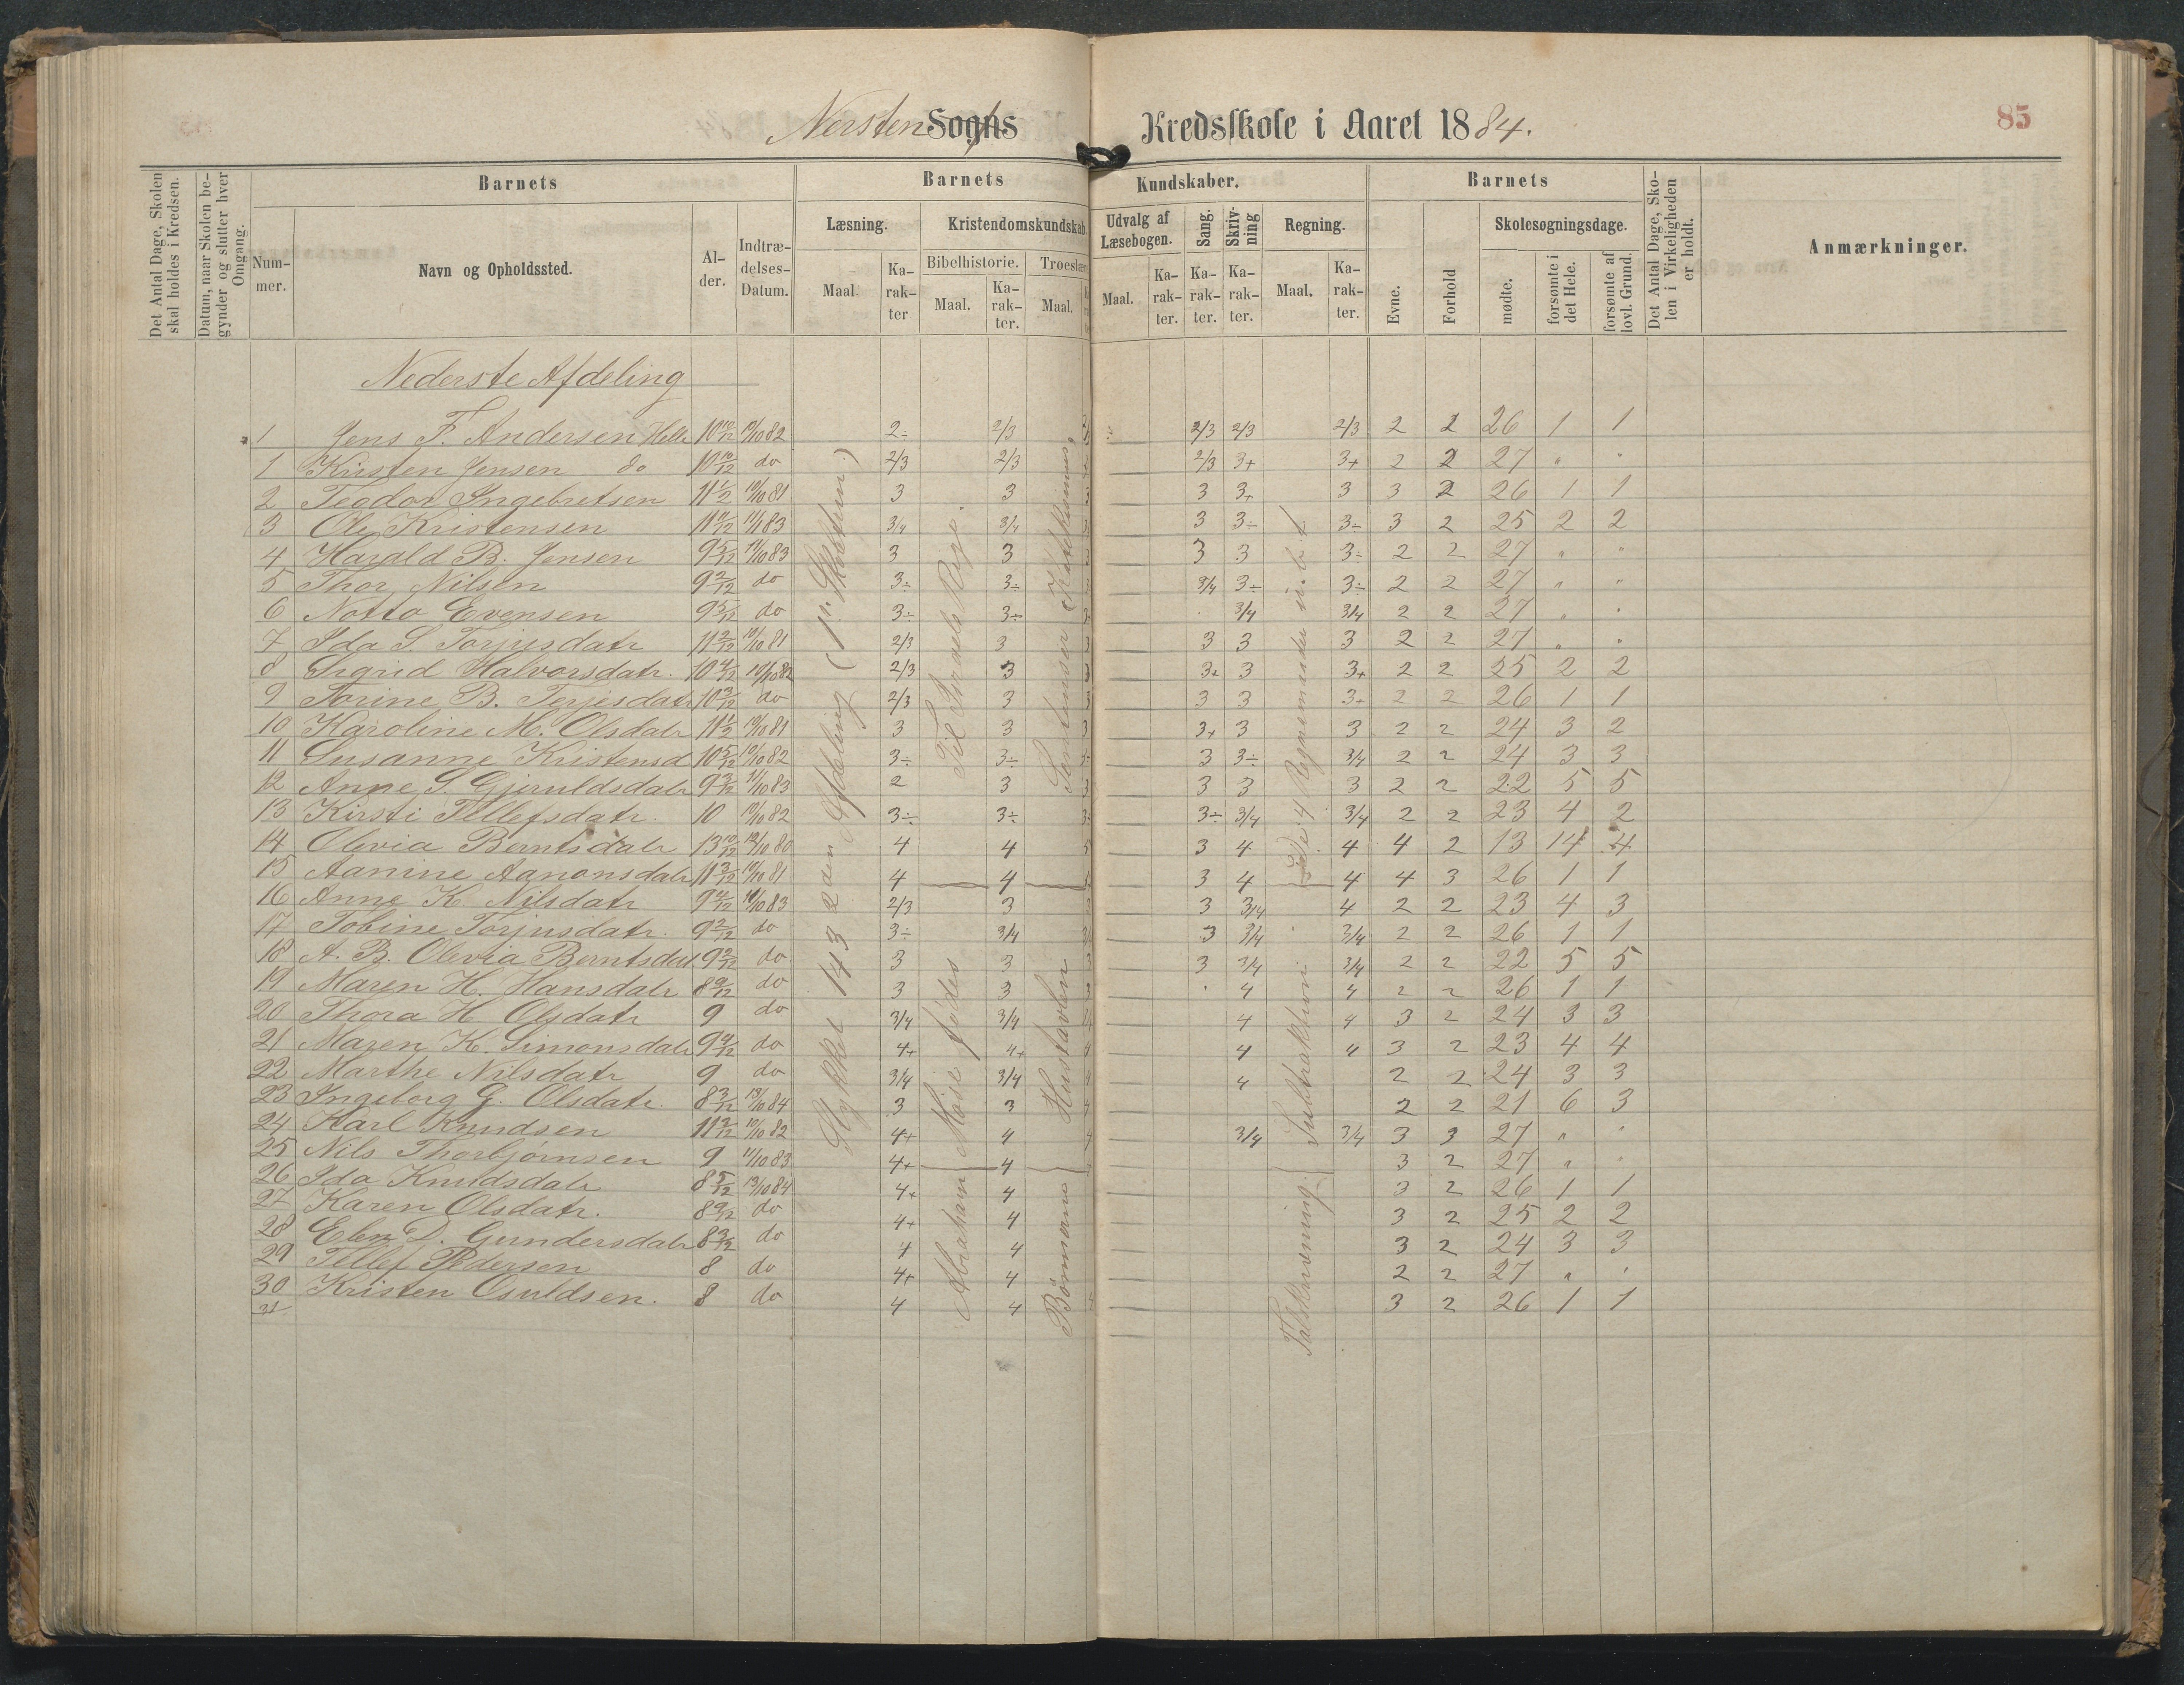 Nersten Sogns Kredsskole i Aaret 1884.
85
Det Antal Dage, Skolen skal holdes i Kredsen.
Datum, naar Skolen begynder og slutter hver Omgang.
Barnets
Barnets Kundskaber.
Barnets
Det Antal Dage, Skolen i Virkeligheden er holdt.
Anmærkninger.
Nummer.
Navn og Opholdssted.
Alder.
Indtrædelses-Datum.
Læsning.
Kristendomskundskab.
Udvalg af Læsebogen.
Sang.
Skrivning
Regning.
Evne.
Forhold
Skolesøgningsdage.
Bibelhistorie.
Troeslære
Maal.
Karakter
Maal.
Karakter.
Maal.
Maal.
Karakter.
Karakter.
Karakter.
Maal.
Karakter.
mødte.
forsømte i det Hele.
forsømte af lovl. Grund.
Nederste Afdeling
1 Jens F. Andersen Helle 10 10/12 82 2÷ 2/3 2/3 2/3 2/3 2 2 26 1 1
1 Kristen Jensen do 10 10/12 do 2/3 2/3 2/3 3+ 3+ 2 2 27 " "
2 Teodor Ingebretsen 11 1/2 10/10 81 3 3 3 3+ 3 3 2 26 1 1
3 Ole Kristensen 11 11/12 83 3/4 3/4 3 3÷ 3÷ 3 2 25 2 2
4 Harald B. Jensen 9 5/12 11/10 83 3 3 3 3 3÷ 2 2 27 " "
5 Thor Nilsen 9 2/12 do 3÷ 3÷ 3/4 3÷ 3÷ 2 2 27 " "
6 Notto Evensen 9 5/12 do 3÷ 3÷ 3/4 3/4 2 2 27 " "
7 Ida S. Torjusdatr 11 2/12 10/10 81 2/3 3 3 3 3 2 2 27 " "
8 Sigrid Halvorsdatr. 10 4/12 10/10 82 2/3 3 3+ 3 3+ 2 2 25 2 2
9 Torine B. Terjesdatr 10 3/12 do 2/3 3 3 3 3+ 2 2 26 1 1
10 Karoline M. Olsdatr 11 1/2 10/10 81 3 3 3+ 3 3 2 2 24 3 2
11 Susanne Kristensd 10 5/12 10/10 82 3÷ 3÷ 3 3÷ 3/4 2 2 24 3 3
12 Anne S. Gjeruldsdatr 9 3/12 11/10 83 2 3 3 3 3 2 2 22 5 5
13 Kirsti Tellefsdatr. 10 10/10 82 3÷ 3÷ 3÷ 3/4 3/4 2 2 23 4 2
14 Olevia Berntsdatr 13 10/12 12/10 80 4 4 3 4 4 4 2 13 14 4
15 Aanine Aanonsdatr 11 3/12 10/10 81 4 4 3 4 4 4 3 26 1 1
16 Anne K. Nilsdatr 9 4/12 11/10 83 2/3 3 3 3/4 4 2 2 23 4 3
17 Tobine Torjusdatr. 9 2/12 do 3÷ 3/4 3 3/4 3/4 2 2 26 1 1
18 A. B. Olevia Berntsdat. 9 2/12 do 3 3 3 3/4 3/4 2 2 22 5 5
19 Maren H. Hansdatr 8 9/12 do 3 3 4 4 2 2 26 1 1
20 Thora H. Olsdatr 9 do 3/4 3/4 4 4 3 2 24 3 3
21 Maren K. Simonsdatr 9 9/12 do 4+ 4+ 4 4 3 2 23 4 4
22 Marthe Nilsdatr 9 do 3/4 3/4 4 2 2 24 3 3
23 Ingeborg G. Olsdatr. 8 3/12 13/10 84 3 3 2 2 21 6 3
24 Karl Knudsen 11 2/12 10/10 82 4+ 4 3/4 3/4 3 3 27 " "
25 Nils Thorbjornsen 9 11/10 83 4+ 4 3 2 27 " "
26 Ida Knuldsdatr 8 5/12 13/10 84 4+ 4 3 2 26 1 1
27 Karen Olsdatr. 8 9/12 do 4+ 4 3 2 25 2 2
28 Elen D. Gundersdatr 8 3/12 do 4 4 3 2 24 3 3
29 Tellef Pedersen 8 do 4+ 4 2 2 27 " "
30 Kristen Osuldsen. 8 do 4 4 3 2 26 1 1
31
Stykket 143 2den Afdeling (1ste Skoletrin)
Til Israels Rige.
Mose fødes
Abraham
Sentenser Katekismus
Hustavlen
Bømnerne
De 4 Regnemaader
Subtraktion
Talskrivning.